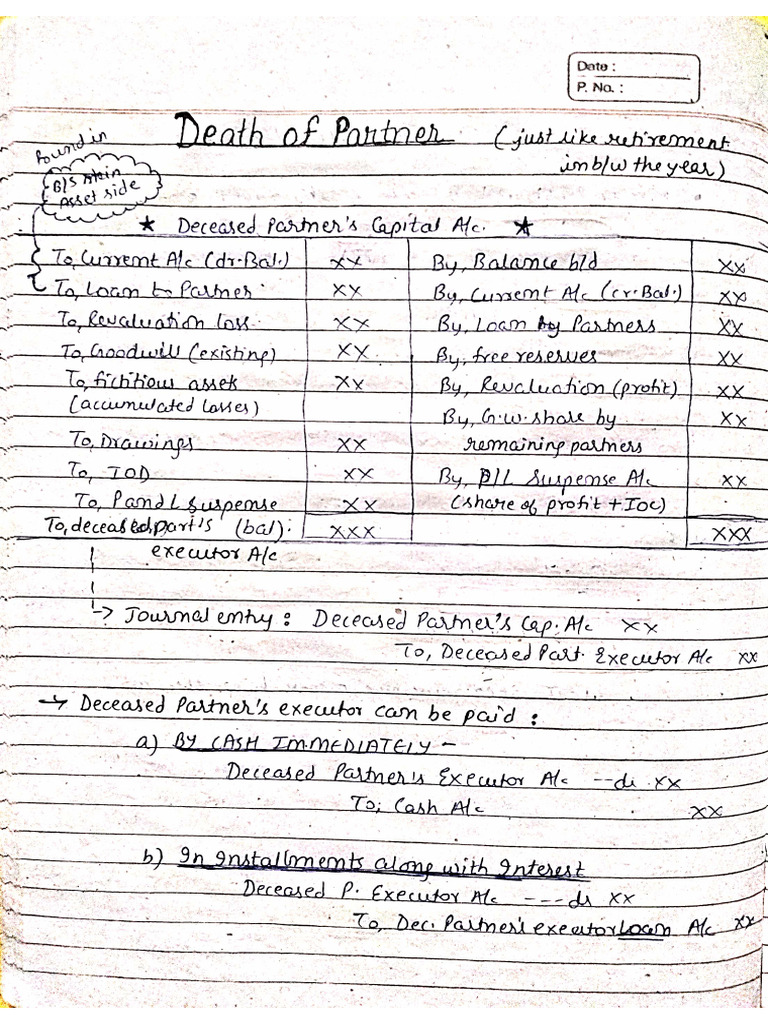 Date :
P. No. :
Death of Partner (just like retirement
in b/w the year)
Found in
B/S main
Asset side
* Deceased Partner's Capital A/c. *
To, Current A/c (dr. Bal.) xx By, Balance b/d xx
To, Loan to Partner xx By, Current A/c (cr. Bal.) xx
To, Revaluation loss xx By, Loan by Partners xx
To, Goodwill (existing) xx By, free reserves xx
To, fictitious asset xx By, Revaluation (profit) xx
(accumulated losses) By, G.w. share by xx
To, Drawings xx remaining partners
To, IOD xx By, P/L Suspense A/c xx
To, P and L Suspense xx (share of profit + IOC)
To, deceased part's (bal): xxx xxx
executor A/c
-> Journal entry : Deceased Partner's Cap. A/c xx
To, Deceased Part. Executor A/c xx
→ Deceased Partner's executor can be paid :
a) BY CASH IMMEDIATELY –
Deceased Partner's Executor A/c --dr xx
To, Cash A/c xx
b) In Installments along with Interest
Deceased P. Executor A/c ---dr xx
To, Dec. Partner's executor Loan A/c xx